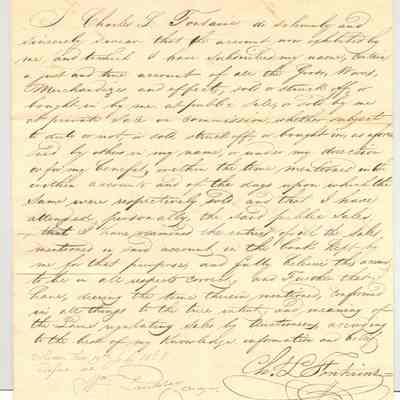 I Charles L. do solemnly and
sincerely swear that the account now exhibited by
me and to which I have subscribed my name, contains
a just and true account of all the Goods, Wares,
Merchandizes and effects, sold or struck off, or
bought in by me at public Sale, or sold by me
at private Sale on commission, whether subject
to duty or not, or sold, struck off, or bought in, as afore-
said by others in my name, or under my direction
or for my benefit, within the time mentioned in the
within account; and of the days upon which the
Same were respectively sold, and that I have
attended personally the said public Sales,
that I have examined the entries of all the Sales
mentioned in said account, in the book kept by
me for that purpose, and fully believe this account
to be in all respects correct, and Further that I
have, during the time therein mentioned, conformed
in all things to the true intent and meaning of
the Laws regulating Sales by Auctioneers, according
to the best of my knowledge information and belief
Sworn this
before me
Chs. L.